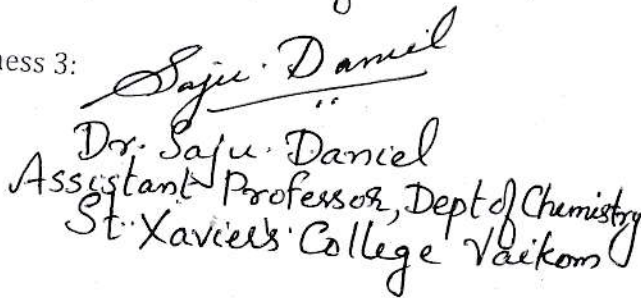 ness 3:
Saju. Daniel
Dr. Saju. Daniel
Assistant Professor, Dept of Chemistry
St. Xavier's College Vaikom